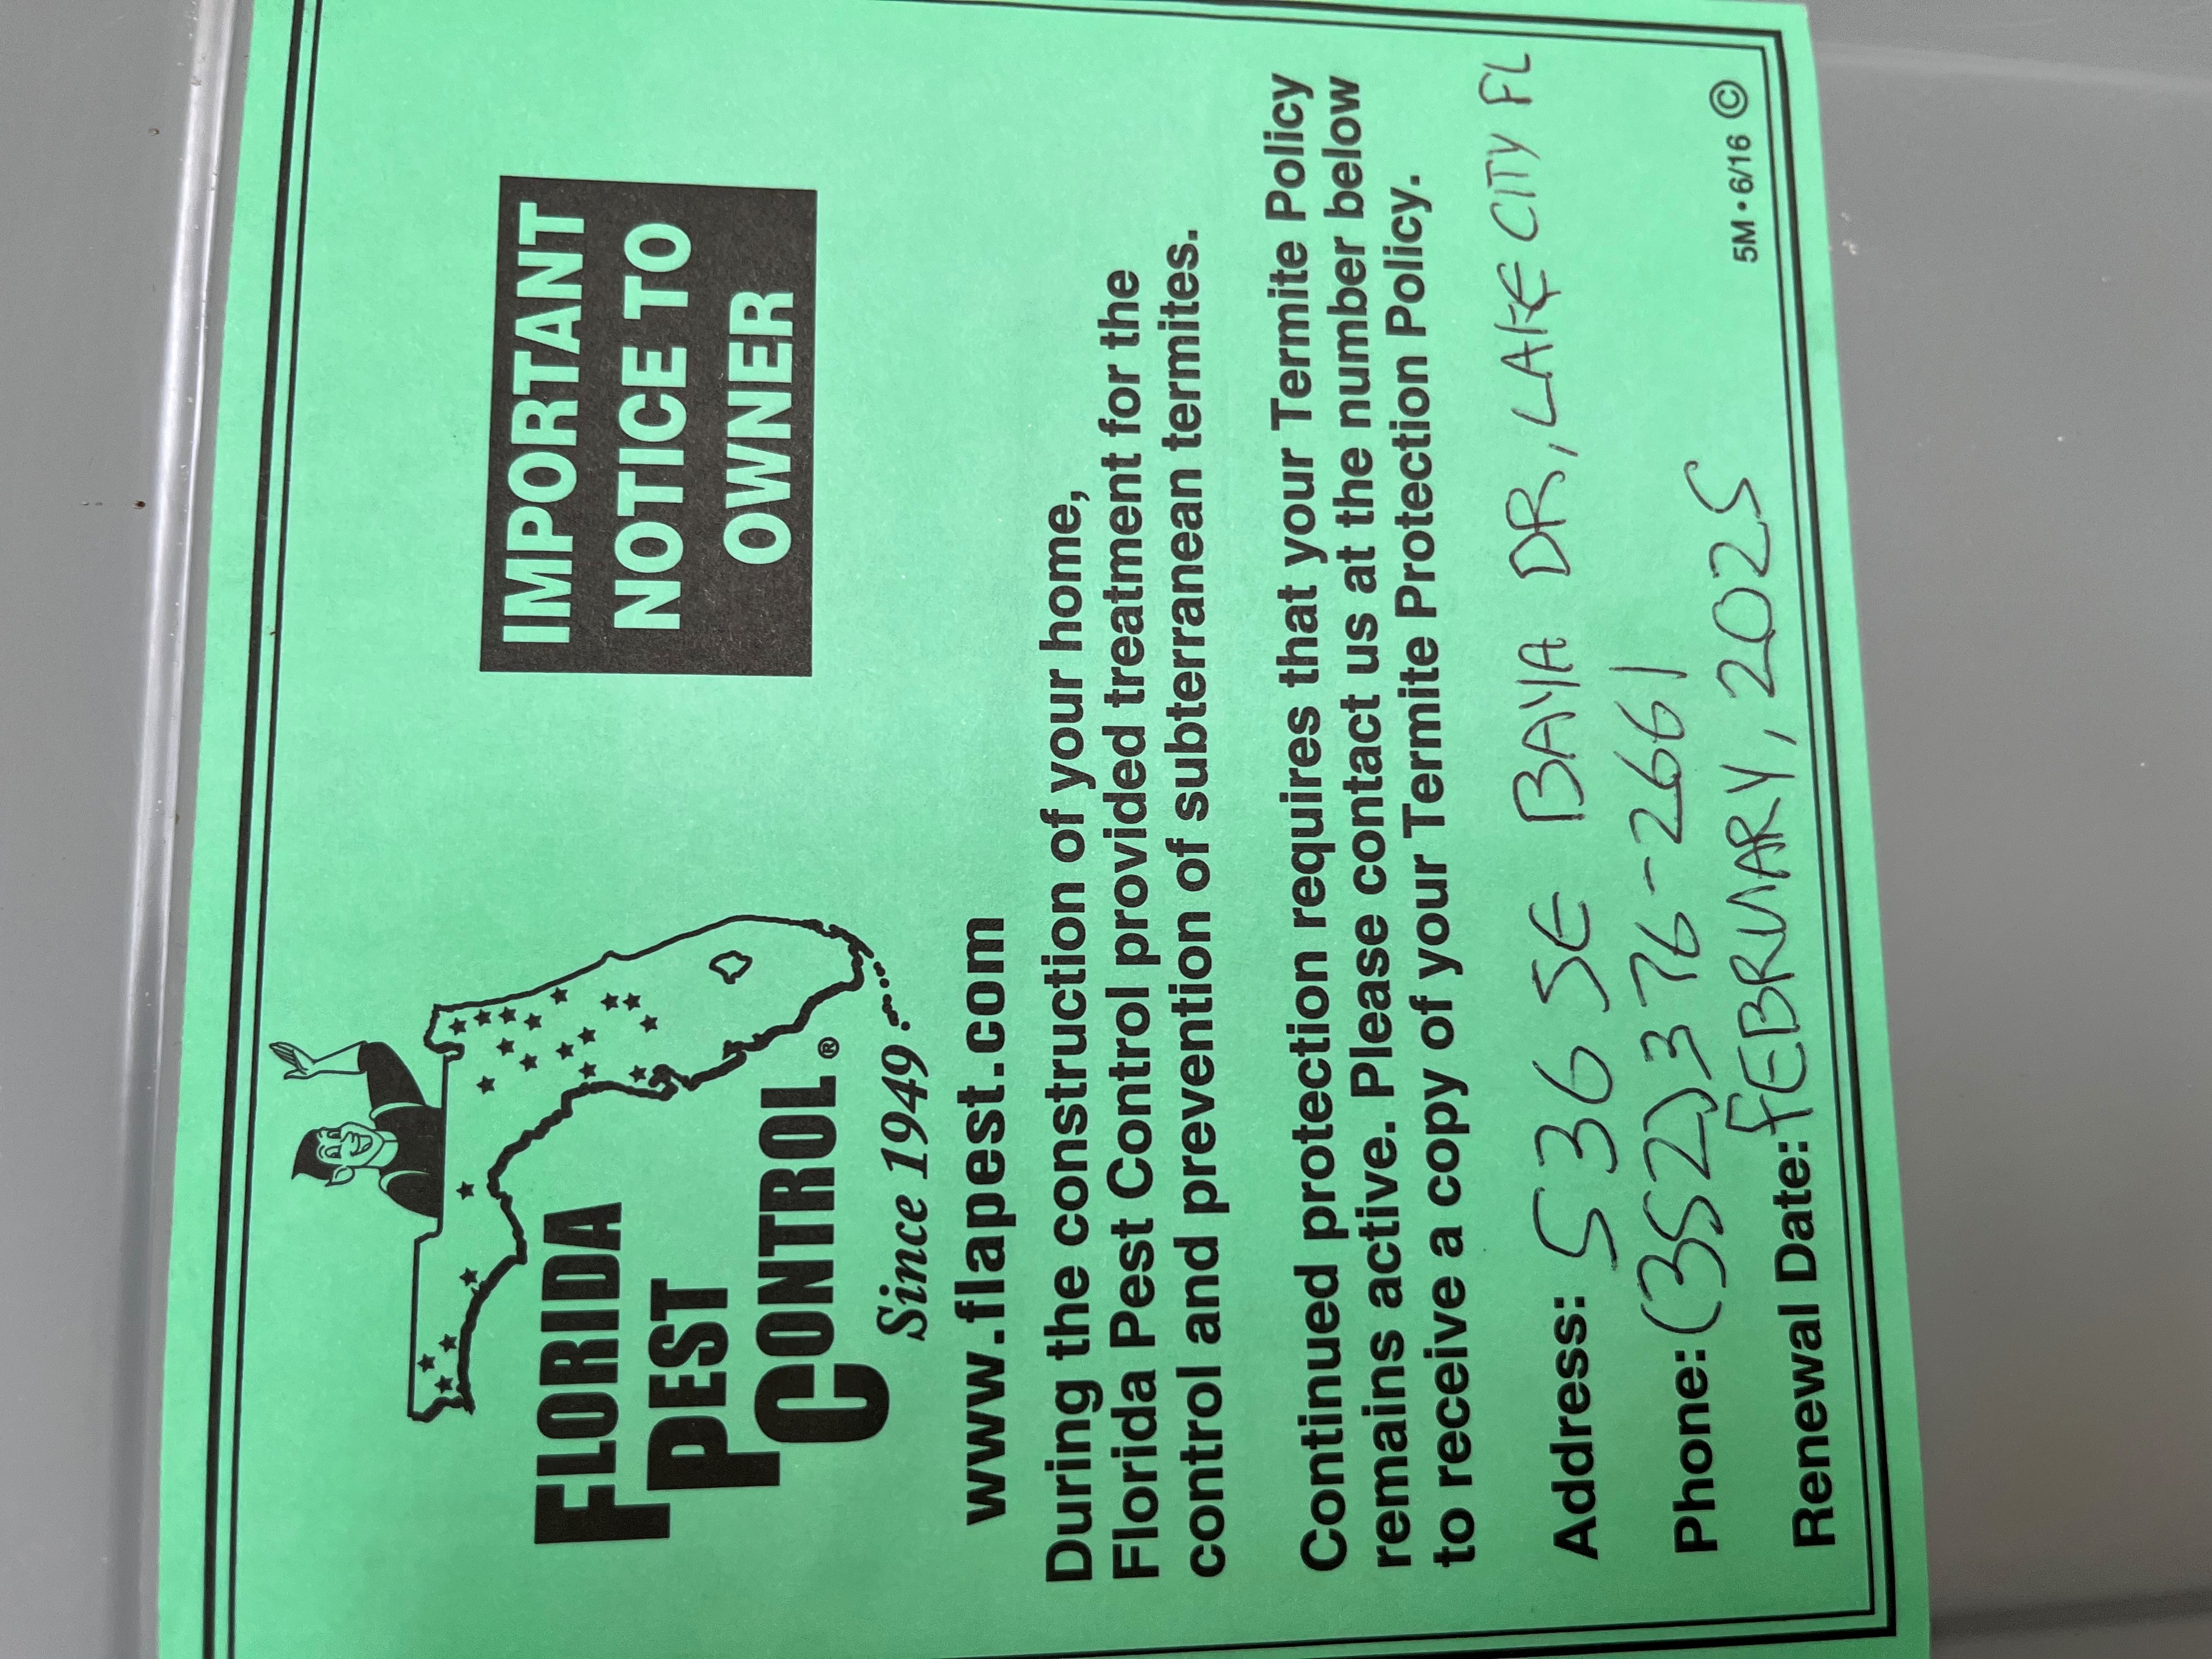 FLORIDA
PEST
CONTROL®
Since 1949
IMPORTANT
NOTICE TO
OWNER
www.flapest.com
During the construction of your home,
Florida Pest Control provided treatment for the
control and prevention of subterranean termites.
Continued protection requires that your Termite Policy
remains active. Please contact us at the number below
to receive a copy of your Termite Protection Policy.
Address: 536 SE BAYA DR, LAKE CITY FL
Phone: (352) 376-2661
Renewal Date: FEBRUARY, 2025
5M • 6/16 ©